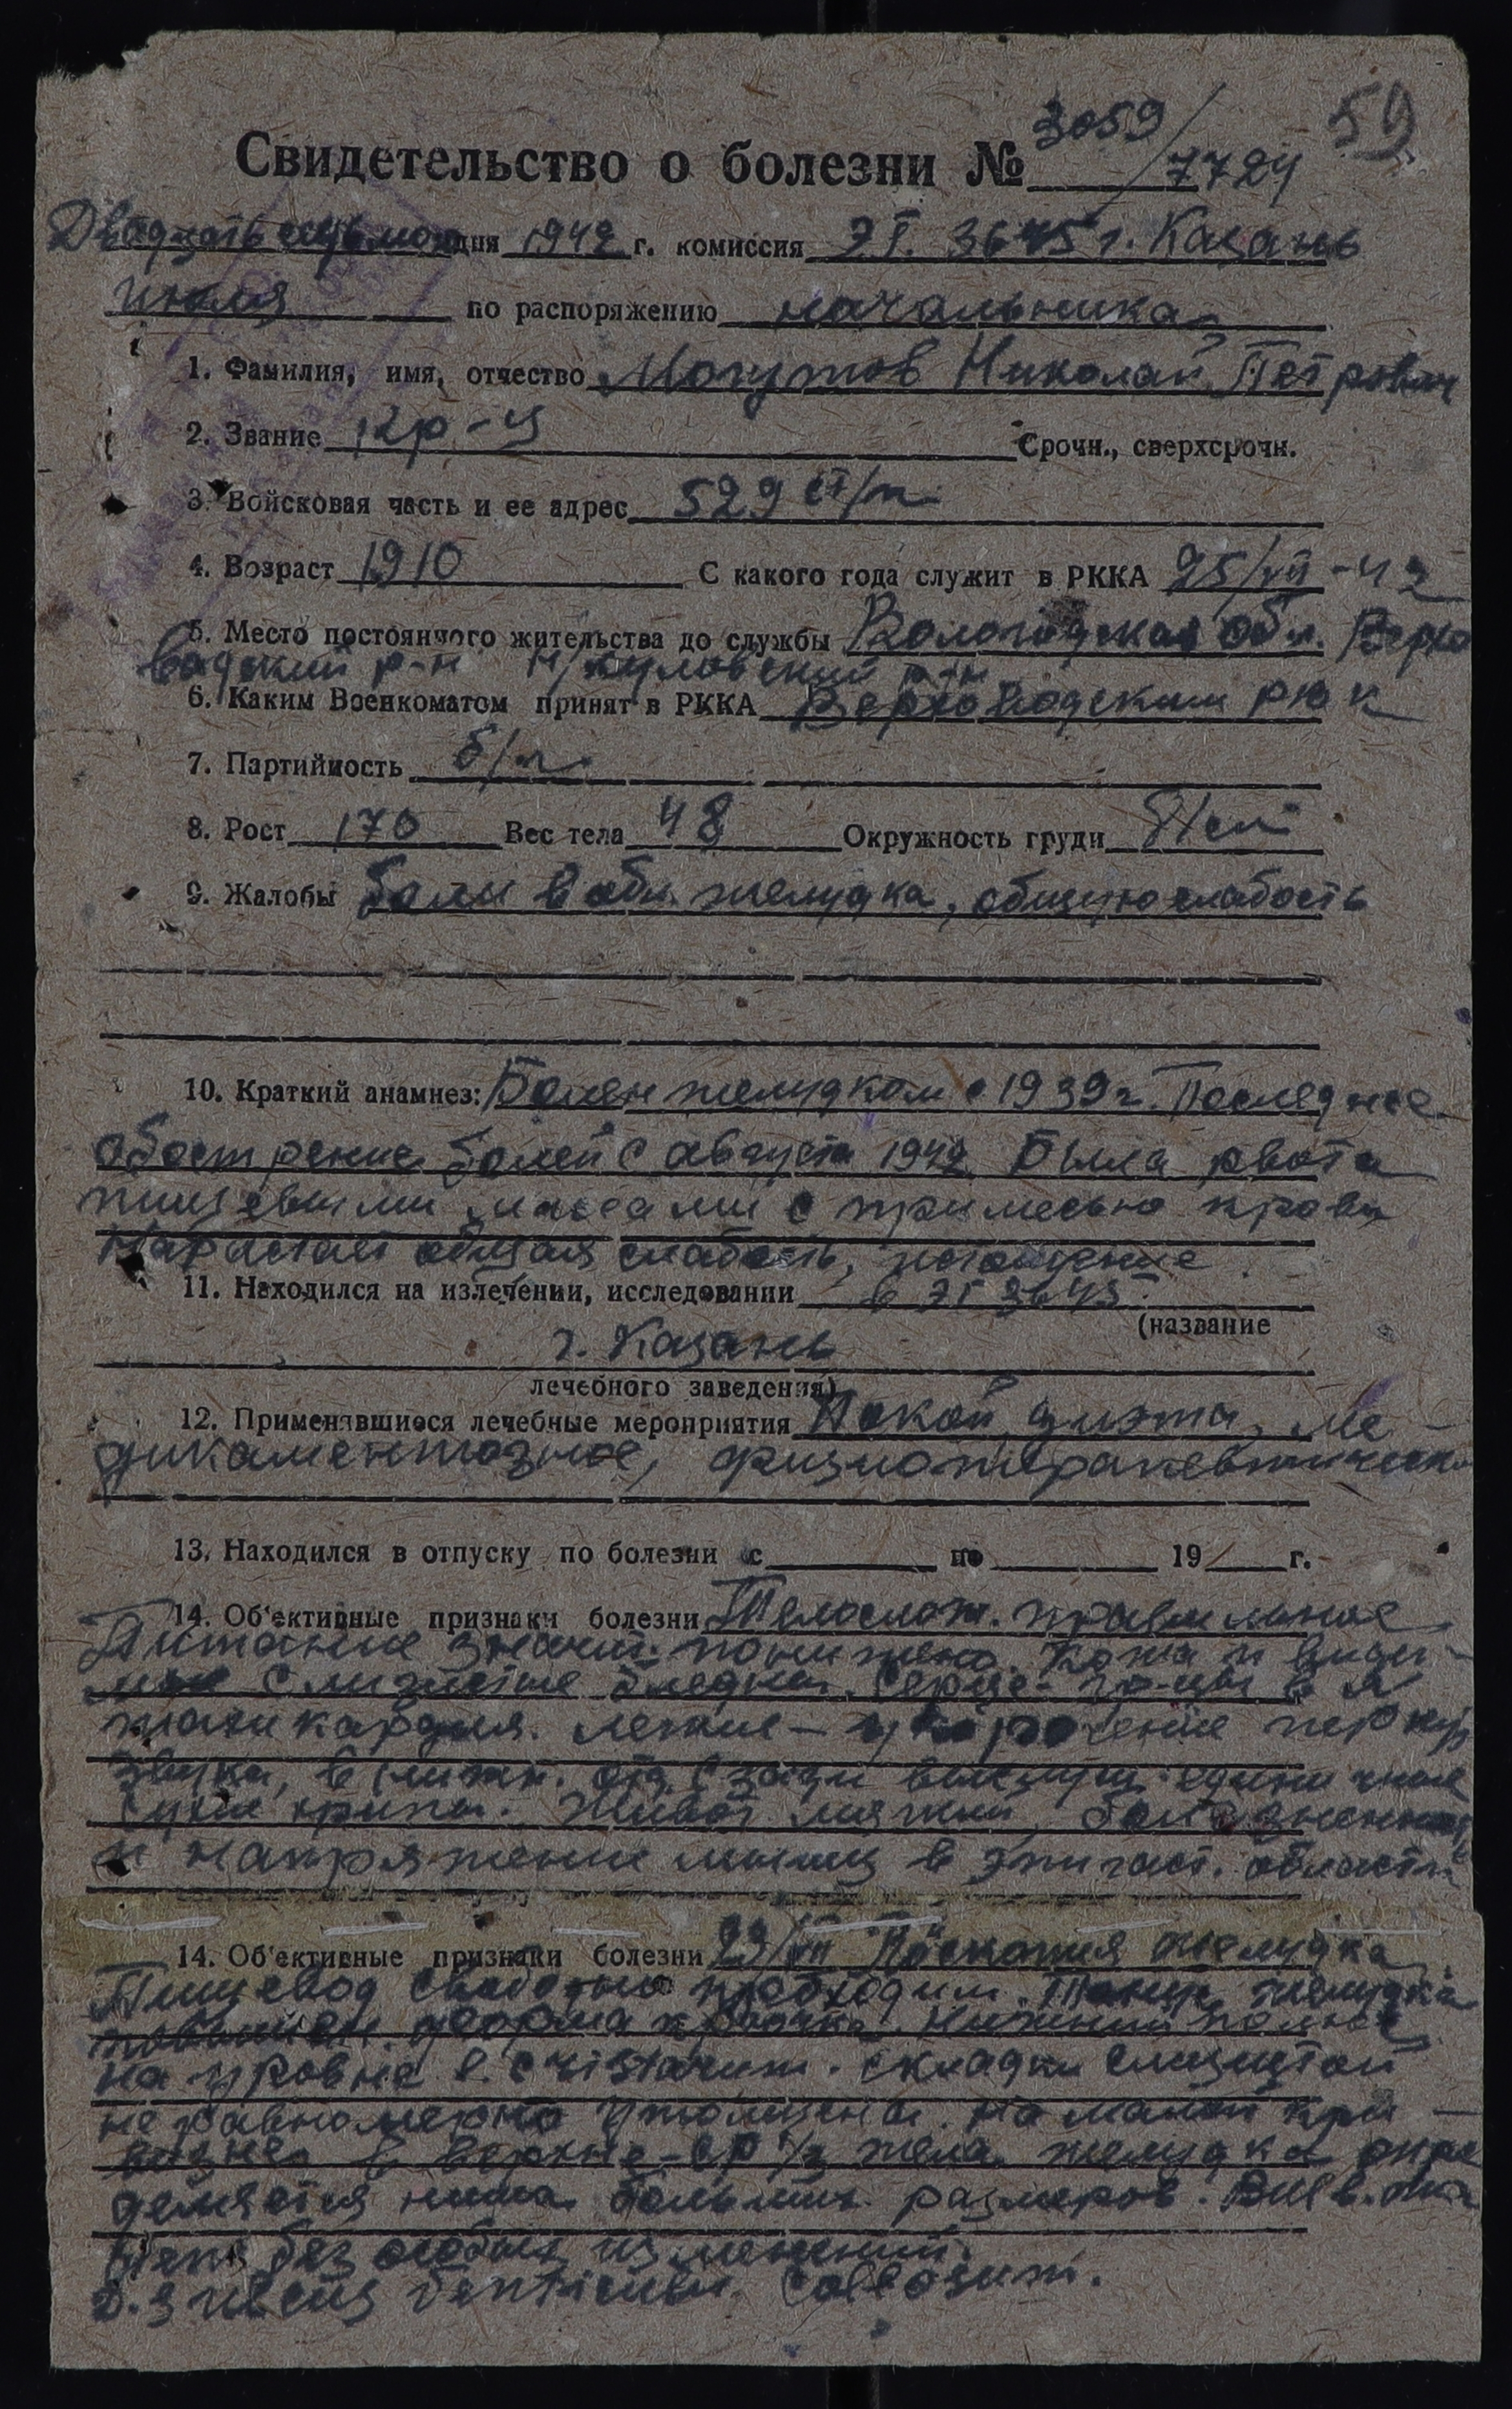 3059/7724 59
Свидетельство о болезни №
Двадцать седьмого дня 1942 г. комиссия ЭГ. 3645 г. Казань
июля по распоряжению начальника
1. Фамилия, имя, отчество Могутов Николай Петрович
2. Звание кр-ц Срочн., сверхсрочн.
3. Войсковая часть и ее адрес 529 с/п
4. Возраст 1910 С какого года служит в РККА 25/VII-42
5. Место постоянного жительства до службы Вологодская обл. Верхо
вадский р-н р-н
6. Каким Военкоматом принят в РККА Верховадским РВК
7. Партийность б/п
8. Рост 170 Вес тела 48 Окружность груди 81 см
9. Жалобы боли в обл. желудка, общую слабость
10. Краткий анамнез: Болен желудком с 1939 г. Последнее
обострение болей с августа 1942 Была рвота
пищевыми массами с примесью крови
Нарастает общая слабость, истощение
11. Находился на излечении, исследовании в ЭГ 3645
(название
г. Казань
лечебного заведения)
12. Применявшиеся лечебные мероприятия Покой, диэта, ме-
дикаментозное, физиотерапевтическо
13. Находился в отпуску по болезни с по 19 г.
14. Об'ективные признаки болезни Телослож. правильное
Питание значит. понижено. Кожа и види-
мые слизистые бледны. Сердце- гр-цы в N
тахикардия. Легкие - укорочение перкур
звука, в нижн. отд. сзади единичные
сухие хрипы. Живот мягкий, болезненност
и напряжение мышц в эпигаст. области
14. Об'ективные признаки болезни 23/VII Р-скопия желудка
Пищевод свободно проходим. Тонус желудка
повышен. форма крючка. Нижний полюс
на уровне l. cristarum. складки слизистой
неравномерно утолщены. На малой кри-
визне в верхне-ср 1/3 тела желудка опре
деляется ниша больших размеров.
без особых изменений.
D.s ulcus ventriculi.